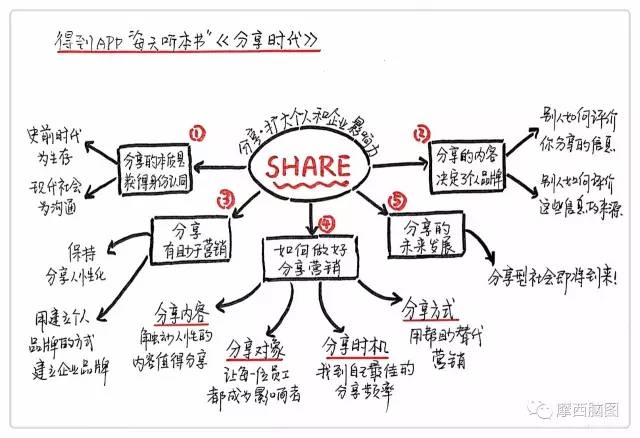 得到APP“每天听本书”《分享时代》
分享·扩大个人和企业影响力
SHARE
①
分享的本质是
获得身份认同
史前时代
为生存
现代社会
为沟通
②
分享的内容
决定了个人品牌
别人如何评价
你分享的信息
别人如何评价
这些信息的来源
③
分享
有助于营销
保持
分享人性化
用建立个人
品牌的方式
建立企业品牌
④
如何做好
分享营销
分享内容
触动人性的
内容值得分享
分享对象
让每一位员工
都成为影响者
分享时机
找到自己最佳的
分享频率
分享方式
用帮助替代
营销
⑤
分享的
未来发展
分享型社会即将到来!
摩西脑图